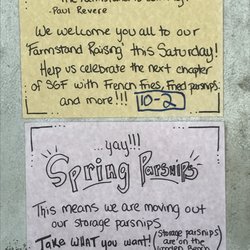 The Farmstand is
-Paul Revere
We welcome you all to our
"Farmstand Raising" this Saturday!
Help us celebrate the next chapter
of SGF with French Fries, Fried parsnips
and more!!! 10-2
...yay!!!
Spring Parsnips
This means we are moving out
our storage parsnips
Take what you want!
(Storage parsnips
are on the
wooden Bench